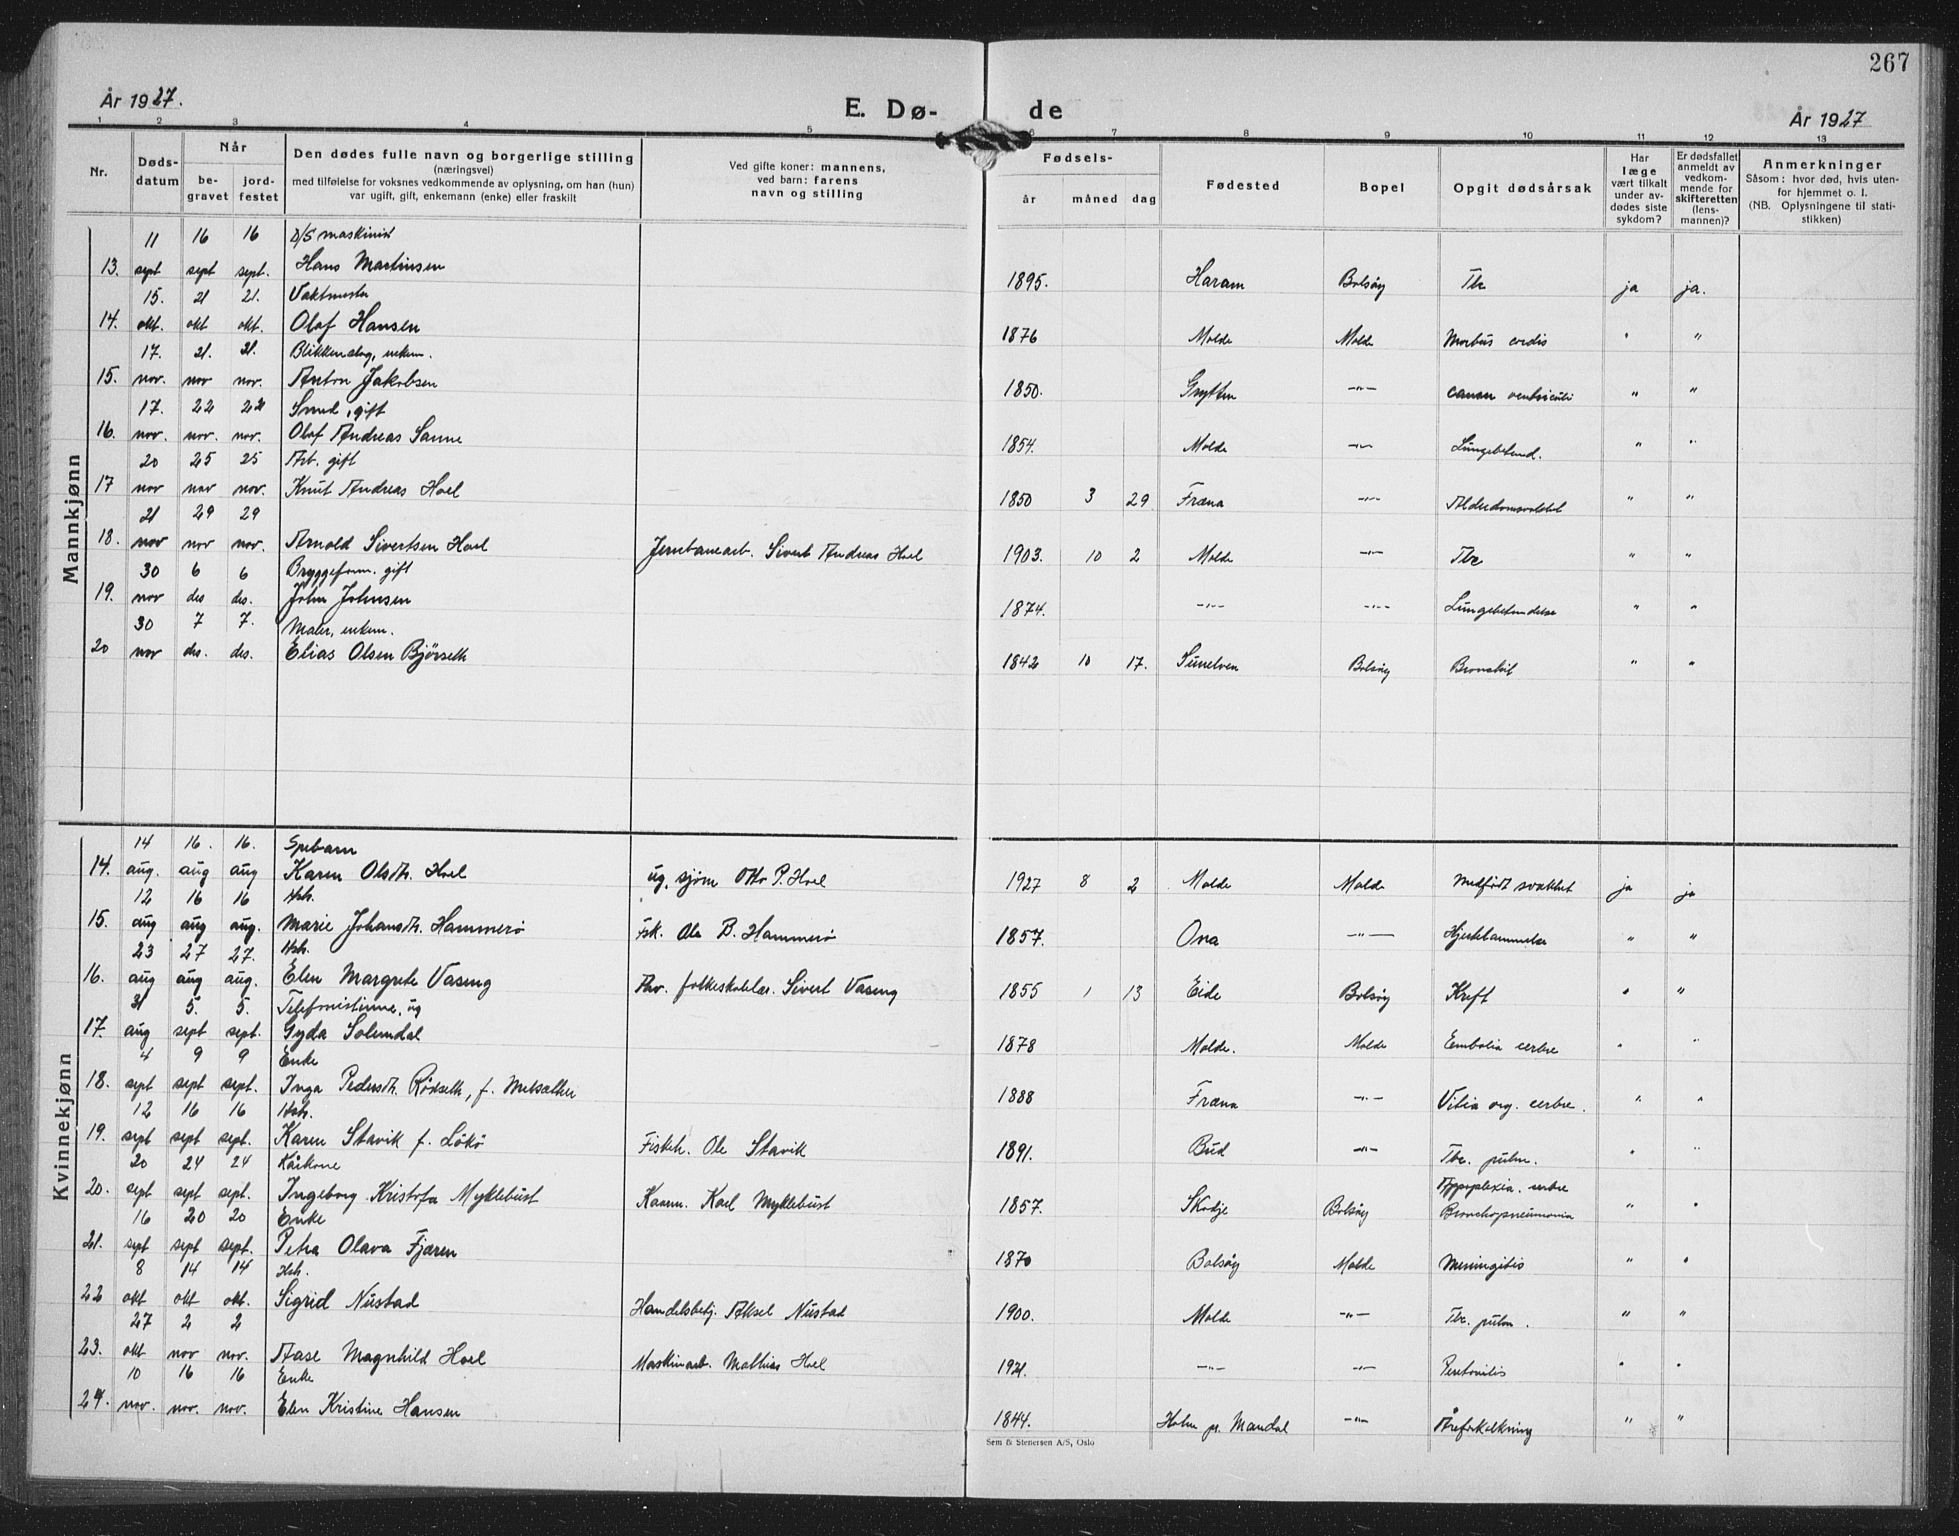 267
År 1927.
E. Dø-
de
År 1927
1 2 3 4 5 6 7 8 9 10 11 12 13
Nr.
Døds-
datum
Når
be-
gravet
jord-
festet
Den dødes fulle navn og borgerlige stilling
(næringsvei)
med tilføielse for voksnes vedkommende av oplysning, om han (hun)
var ugift, gift, enkemann (enke) eller fraskilt
Ved gifte koner: mannens,
ved barn: farens
navn og stilling
Fødsels-
år måned dag
Fødested
Bopel
Opgit dødsårsak
Har
læge
vært tilkalt
under av-
dødes siste
sykdom?
Er dødsfallet
anmeldt av
vedkom-
mende for
skifteretten
(lens-
mannen)?
Anmerkninger
Såsom: hvor død, hvis uten-
for hjemmet o. l.
(NB. Oplysningene til stati-
stikken)
Mannkjønn
11 16 16 D/S maskinist
13. sept sept sept. Hans Martinsen 1895. Haram Bolsøy Tbc ja ja.
15. 21 21. Vaktmester
14. okt. okt okt. Olaf Hansen 1876 Molde Molde Morbus cordis " "
17. 21. 21. Blikkenslag, enkem.
15. nov. nov nov. Anton Jakobsen 1850. Grytten -"- cancer ventriculi " "
17. 22 22 Smed, gift
16. nov. nov. nov. Olaf Andreas Sanne 1854. Molde -"- Lungebetend. " "
20 25 25 Arb. gift
17 nov nov nov. Knut Andreas Hoel 1850 3 29 Fræna -"- Alderdomssvakhet " "
21 29 29
18. nov nov nov. Arnold Sivertsen Hoel Jernbanearb. Sivert Andreas Hoel 1903. 10 2 Molde -"- Tbc " "
30 6 6 Bryggeform. gift
19. nov des des. John Johnsen 1874. -"- -"- Lungebetendelse " "
30 7 7. Maler, enkem.
20 nov des. des. Elias Olsen Bjørseth 1842 10 17. Sunelven Bolsøy Bronchit " "
Kvinnekjønn
14 16. 16. Spebarn
14. aug. aug aug Karen Olsdtr. Hoel ug, sjøm Otto P. Hoel 1927 8 2 Molde Molde Medfødt svakhet ja ja
12 16 16 Hstr.
15. aug aug aug. Marie Johansdtr. Hammerø Fsk. Ole B. Hammerø 1857. Ona -"- Hjertelammelse " "
23 27 27. Hstr.
16. aug aug aug. Elen Margrete Vaseng Pav. folkeskolelær. Sivert Vaseng 1855 1 13 Eide Bolsøy Kreft " "
31 5. 5. Telefonistinne, ug
17. aug sept sept. Gyda Solemdal 1878 Molde. Molde Embolia cerebre " "
4 9 9 Enke
18. sept sept sept. Inga Pedersdtr. Rødseth, f. Melsæther 1888 Fræna -"- Vitia org. cerbre. " "
12 16 16 Hstr.
19. sept sept sept. Karen Stavik f. Løkø Fiskeh. Ole Stavik 1891. Bud -"- Tbc. pulm. " "
20 24 24 Kårkone
20. sept sept sept. Ingeborg Kristofa Myklebust Kaarm. Karl Myklebust 1857. Skodje Bolsøy Appoplexia. cerbre Bronchopneumonia " "
16 20 20 Enke
21. sept sept. sept. Petra Olava Fjæren 1870 Bolsøy Molde Meningitis " "
8 14 14 Hstr.
22 okt okt okt. Sigrid Nustad Handelsbetj. Aksel Nustad 1900. Molde -"- Tbc. pulm. " "
27 2 2
23. okt nov nov. Aase Magnhild Hoel Maskinarb. Mathias Hoel 1921. -"- -"- Peritonitis " "
10 16 16 Enke
24. nov. nov. nov. Elen Kristine Hansen 1844. Holm pr. Mandal -"- Åreforkalkning " "
Sem & Stenersen A/S, Oslo